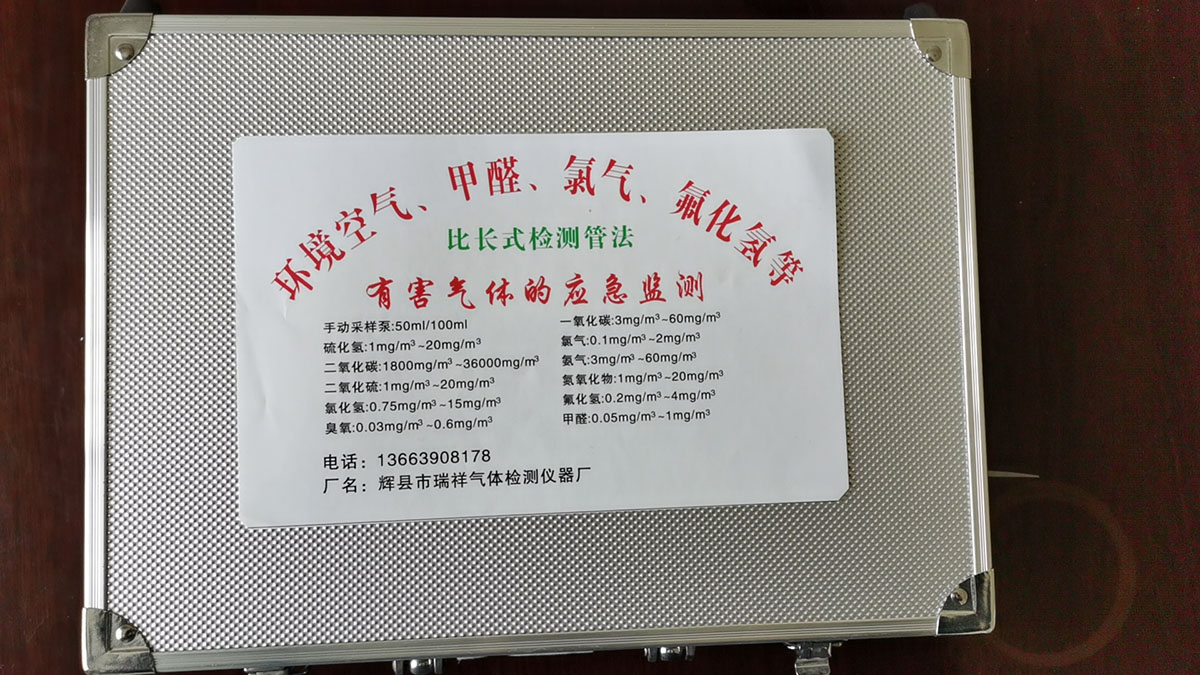 环境空气、甲醛、氯气、氟化氢等
比长式检测管法
有害气体的应急监测
手动采样泵:50ml/100ml
硫化氢:1mg/m³~20mg/m³
二氧化碳:1800mg/m³~36000mg/m³
二氧化硫:1mg/m³~20mg/m³
氯化氢:0.75mg/m³~15mg/m³
臭氧:0.03mg/m³~0.6mg/m³
一氧化碳:3mg/m³~60mg/m³
氯气:0.1mg/m³~2mg/m³
氨气:3mg/m³~60mg/m³
氮氧化物:1mg/m³~20mg/m³
氟化氢:0.2mg/m³~4mg/m³
甲醛:0.05mg/m³~1mg/m³
电话：13663908178
厂名：辉县市瑞祥气体检测仪器厂